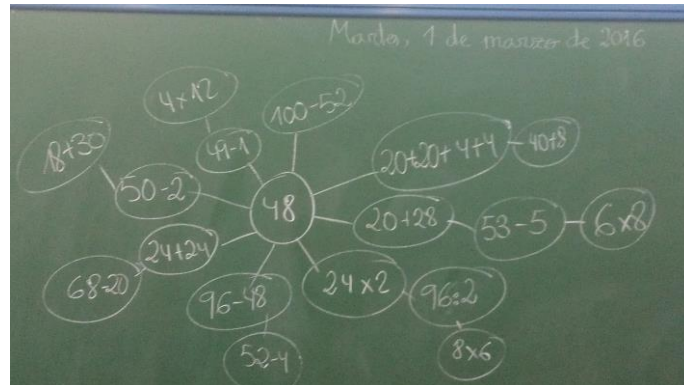 Martes, 1 de marzo de 2016
4×12
100-52
18+30
49-1
20+20+4+4
40+8
50-2
48
20+28
53-5
6×8
24+24
68-20
96-48
24×2
96:2
52-4
8×6